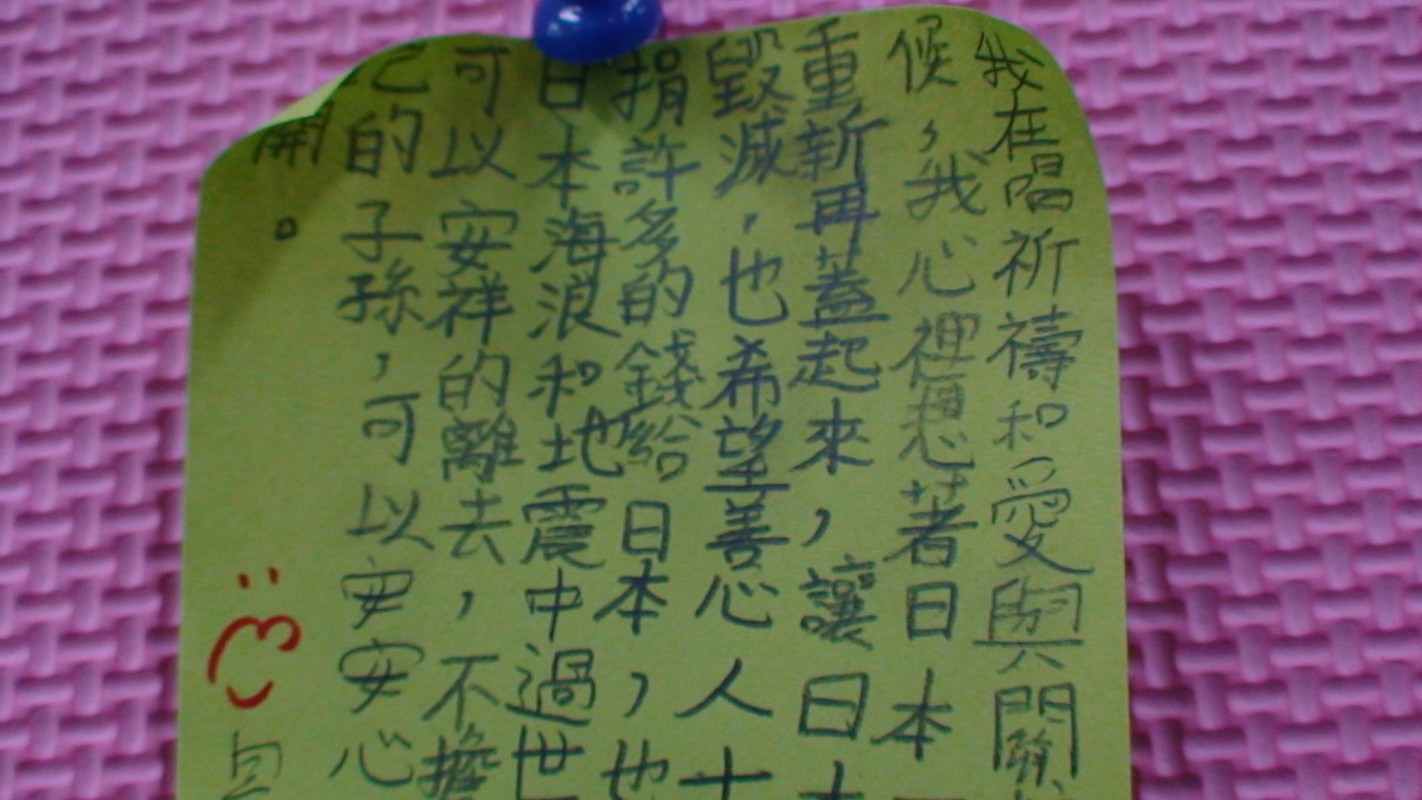 我在唱祈禱和愛與關
候，我心裡想著日本
重新再蓋起來，讓日
毀滅，也希望善心人
捐許多的錢給日本，也
日本海浪和地震中過世
可以安祥的離去，不擔
己的子孫，可以安安心
開。